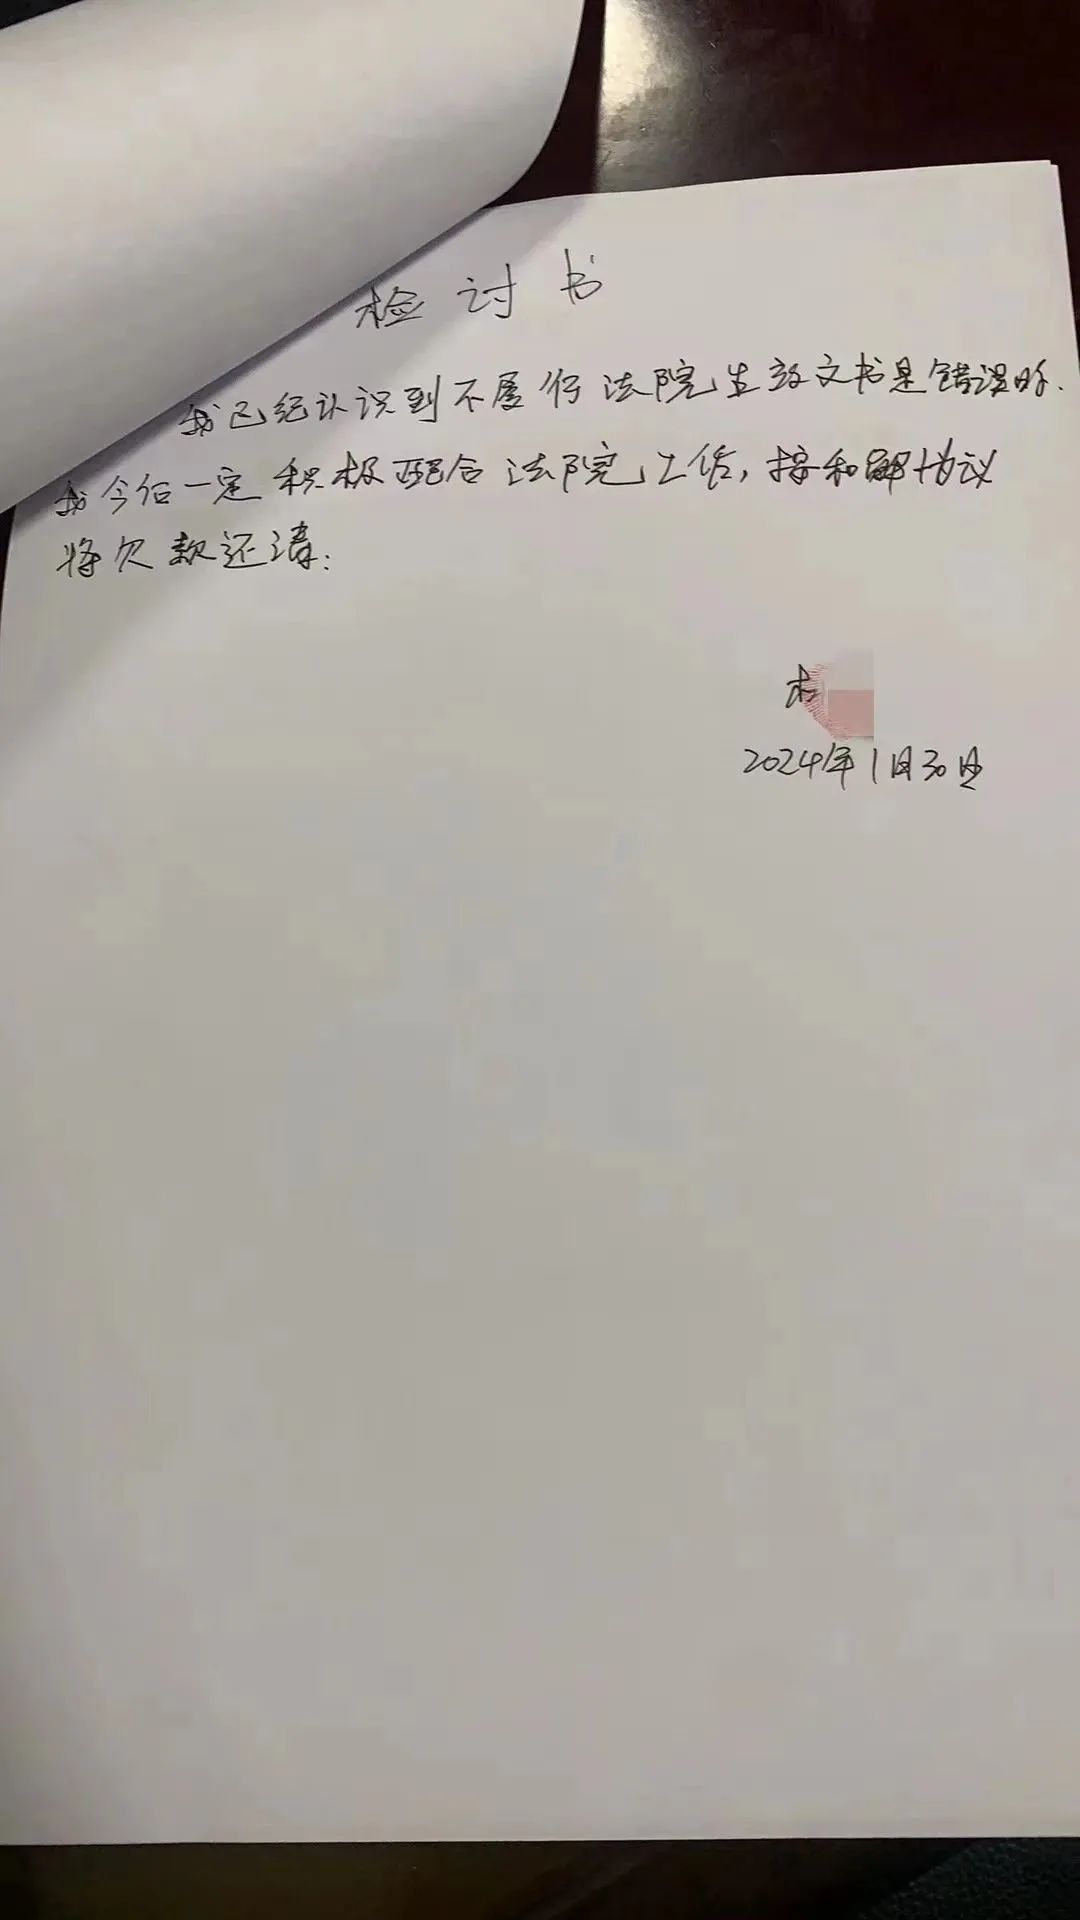 检讨书
我已经认识到不履行法院生效文书是错误的.
我今后一定积极配合法院工作,按和解协议
将欠款还清.
2024年1月30日